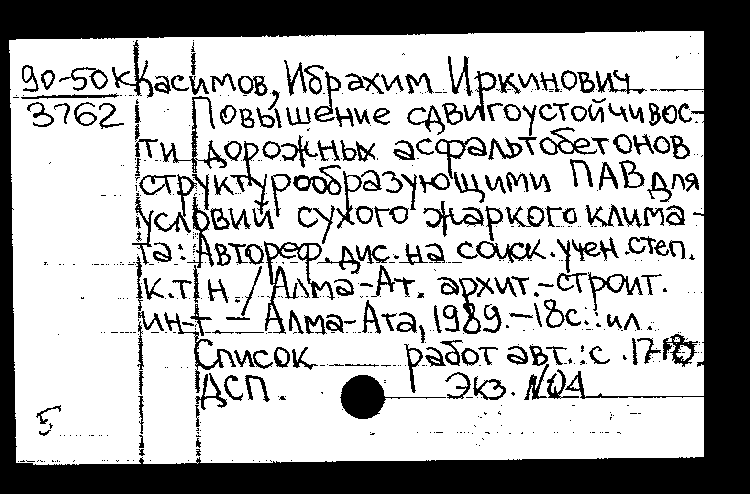 90-50к Касимов, Ибрахим Иркинович.
3762 Повышение сдвигоустойчивос-
ти дорожных асфальтобетонов
структурообразующими ПАВ для
условий сухого жаркого клима-
та: Автореф. дис. на соиск. учен. степ.
к.т.н. / Алма-Ат. архит.-строит.
ин-т. — Алма-Ата, 1989. — 18с.: ил.
Список работ авт.: с. 17-18.
ДСП. Экз. №04
5